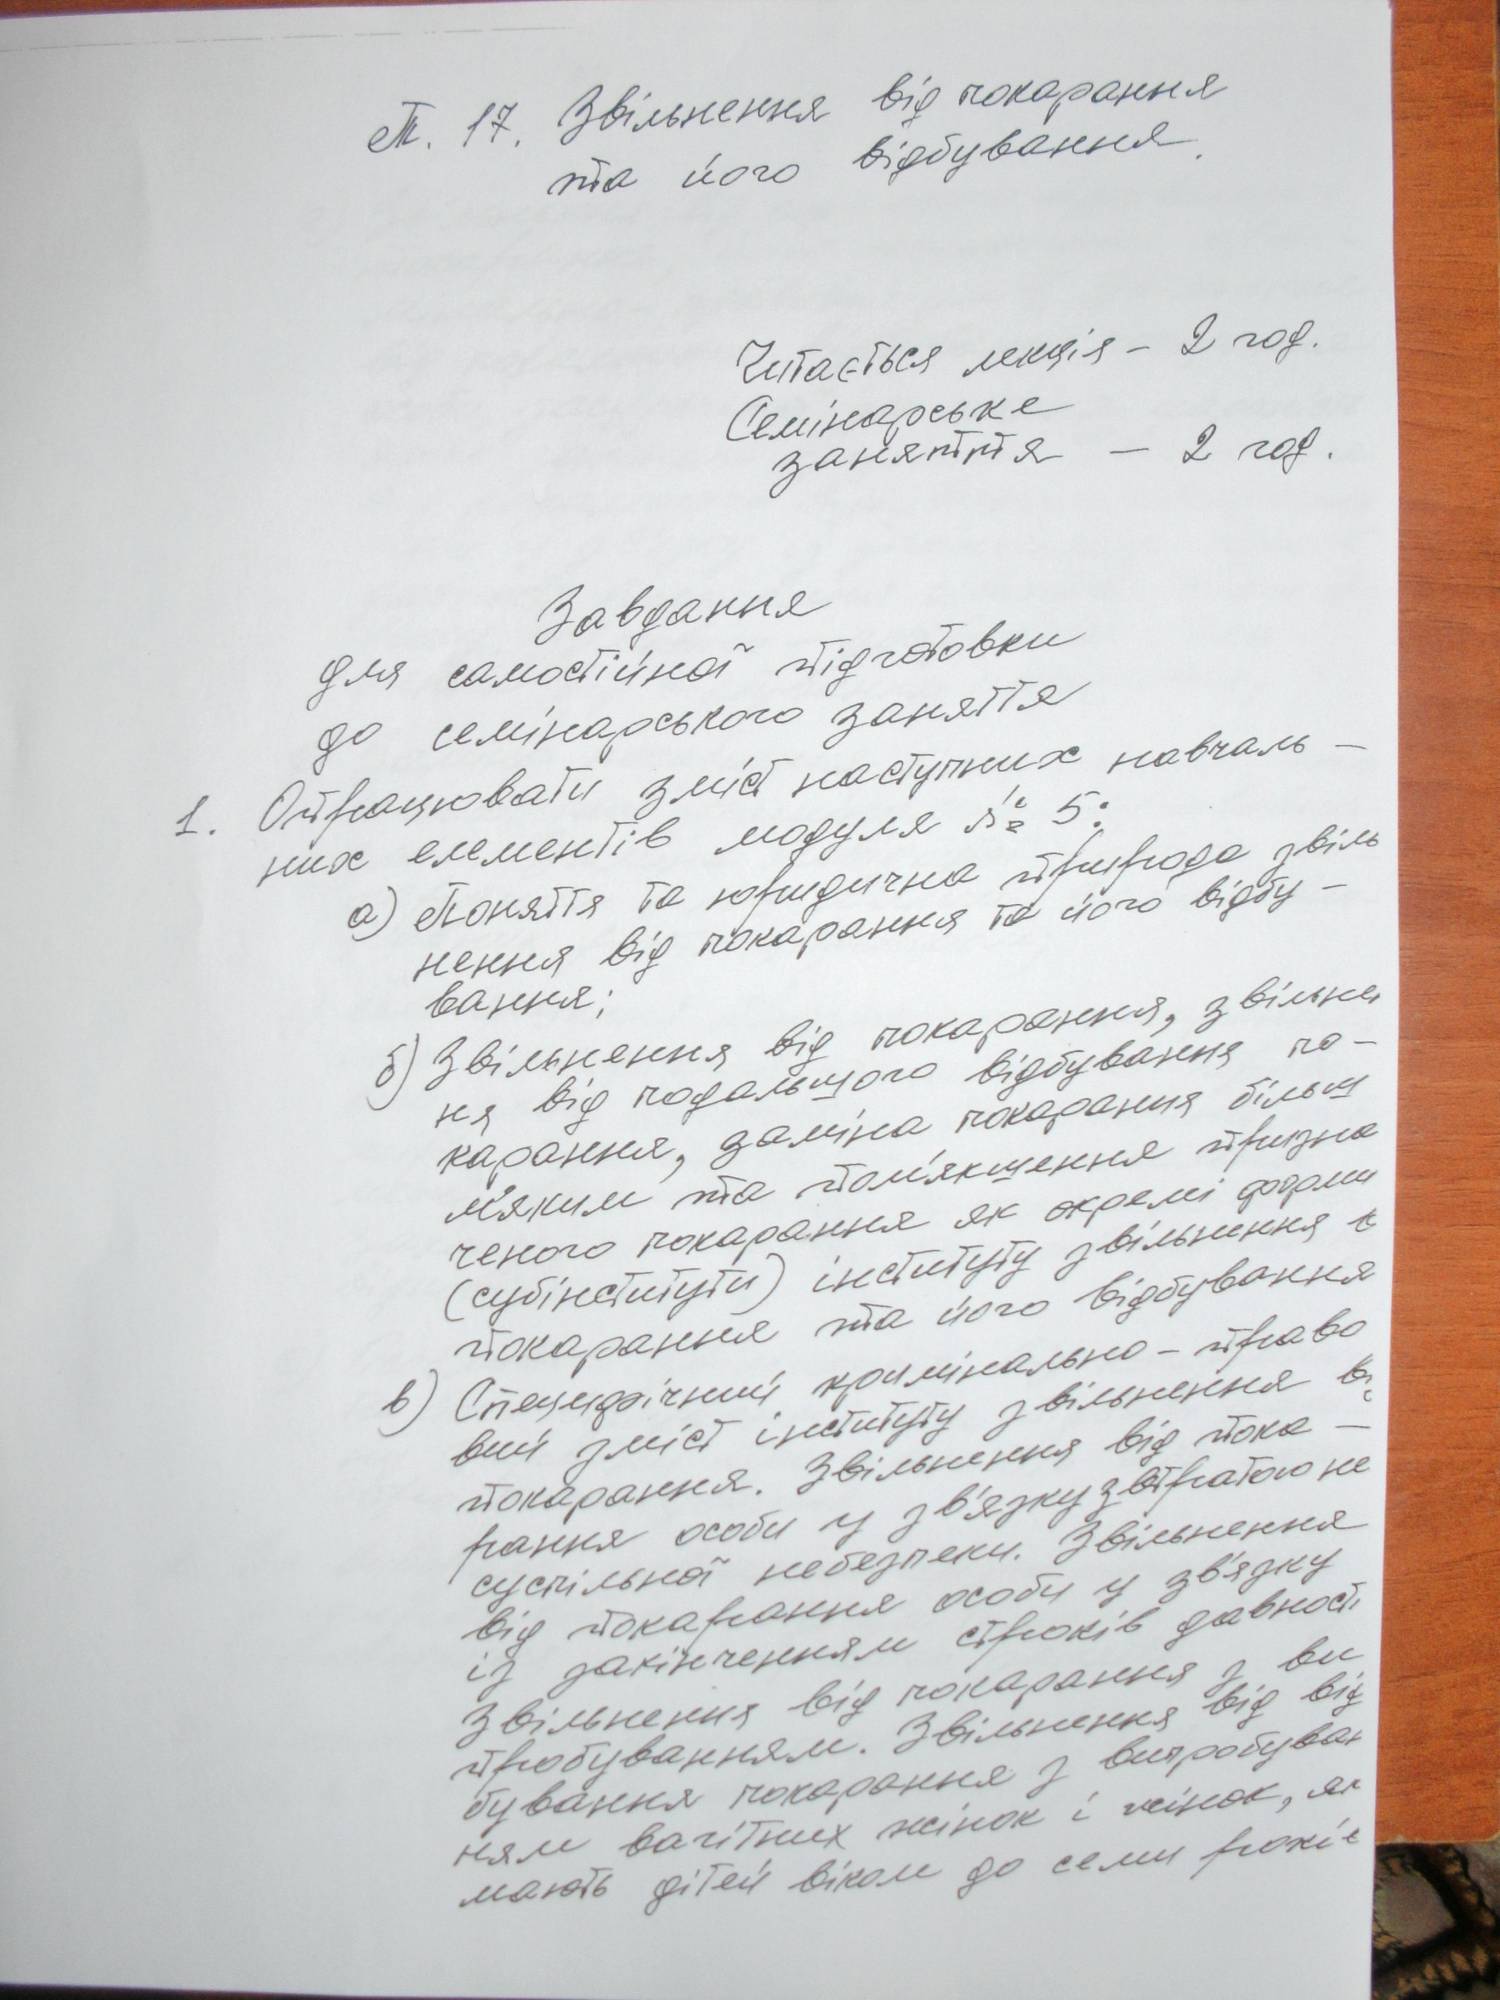 Т. 17. Звільнення від покарання
та його відбування.
Читається лекція – 2 год.
Семінарське
заняття – 2 год.
Завдання
для самостійної підготовки
до семінарського заняття
1. Опрацювати зміст наступних навчаль–
них елементів модуля № 5:
а) Поняття та юридична природа звіль
нення від покарання та його відбу–
вання;
б) Звільнення від покарання, звільнен
ня від подальшого відбування по–
карання, заміна покарання більш
м'яким та пом'якшення призна
ченого покарання як окремі форми
(субінститути) інституту звільнення в
покарання та його відбування
в) Специфічний кримінально–право
вий зміст інституту звільнення ві
покарання. Звільнення від пока–
рання особи у зв'язку з втратою не
суспільної небезпеки. Звільнення
від покарання особи у зв'язку
із закінченням строків давності
Звільнення від покарання з ви
пробуванням. Звільнення від від
бування покарання з випробуван
ням вагітних жінок і жінок, як
мають дітей віком до семи років